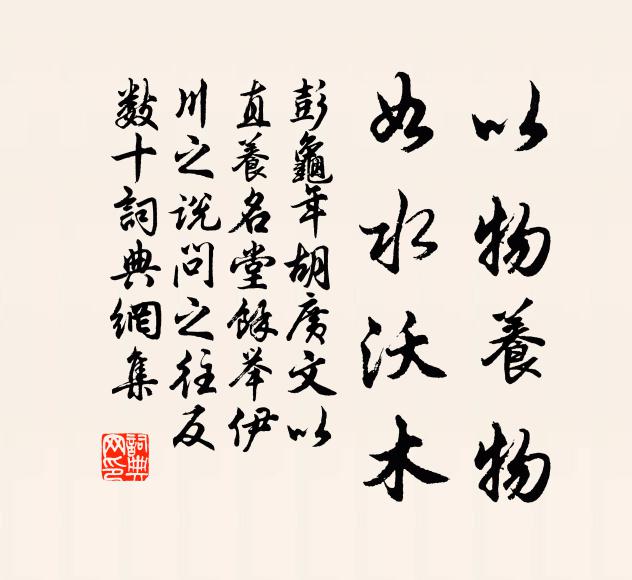 以物養物
如水沃木
彭龜年胡廣文以
直養名堂餘举伊
川之説問之往反
數十詞典網集
詞典網印